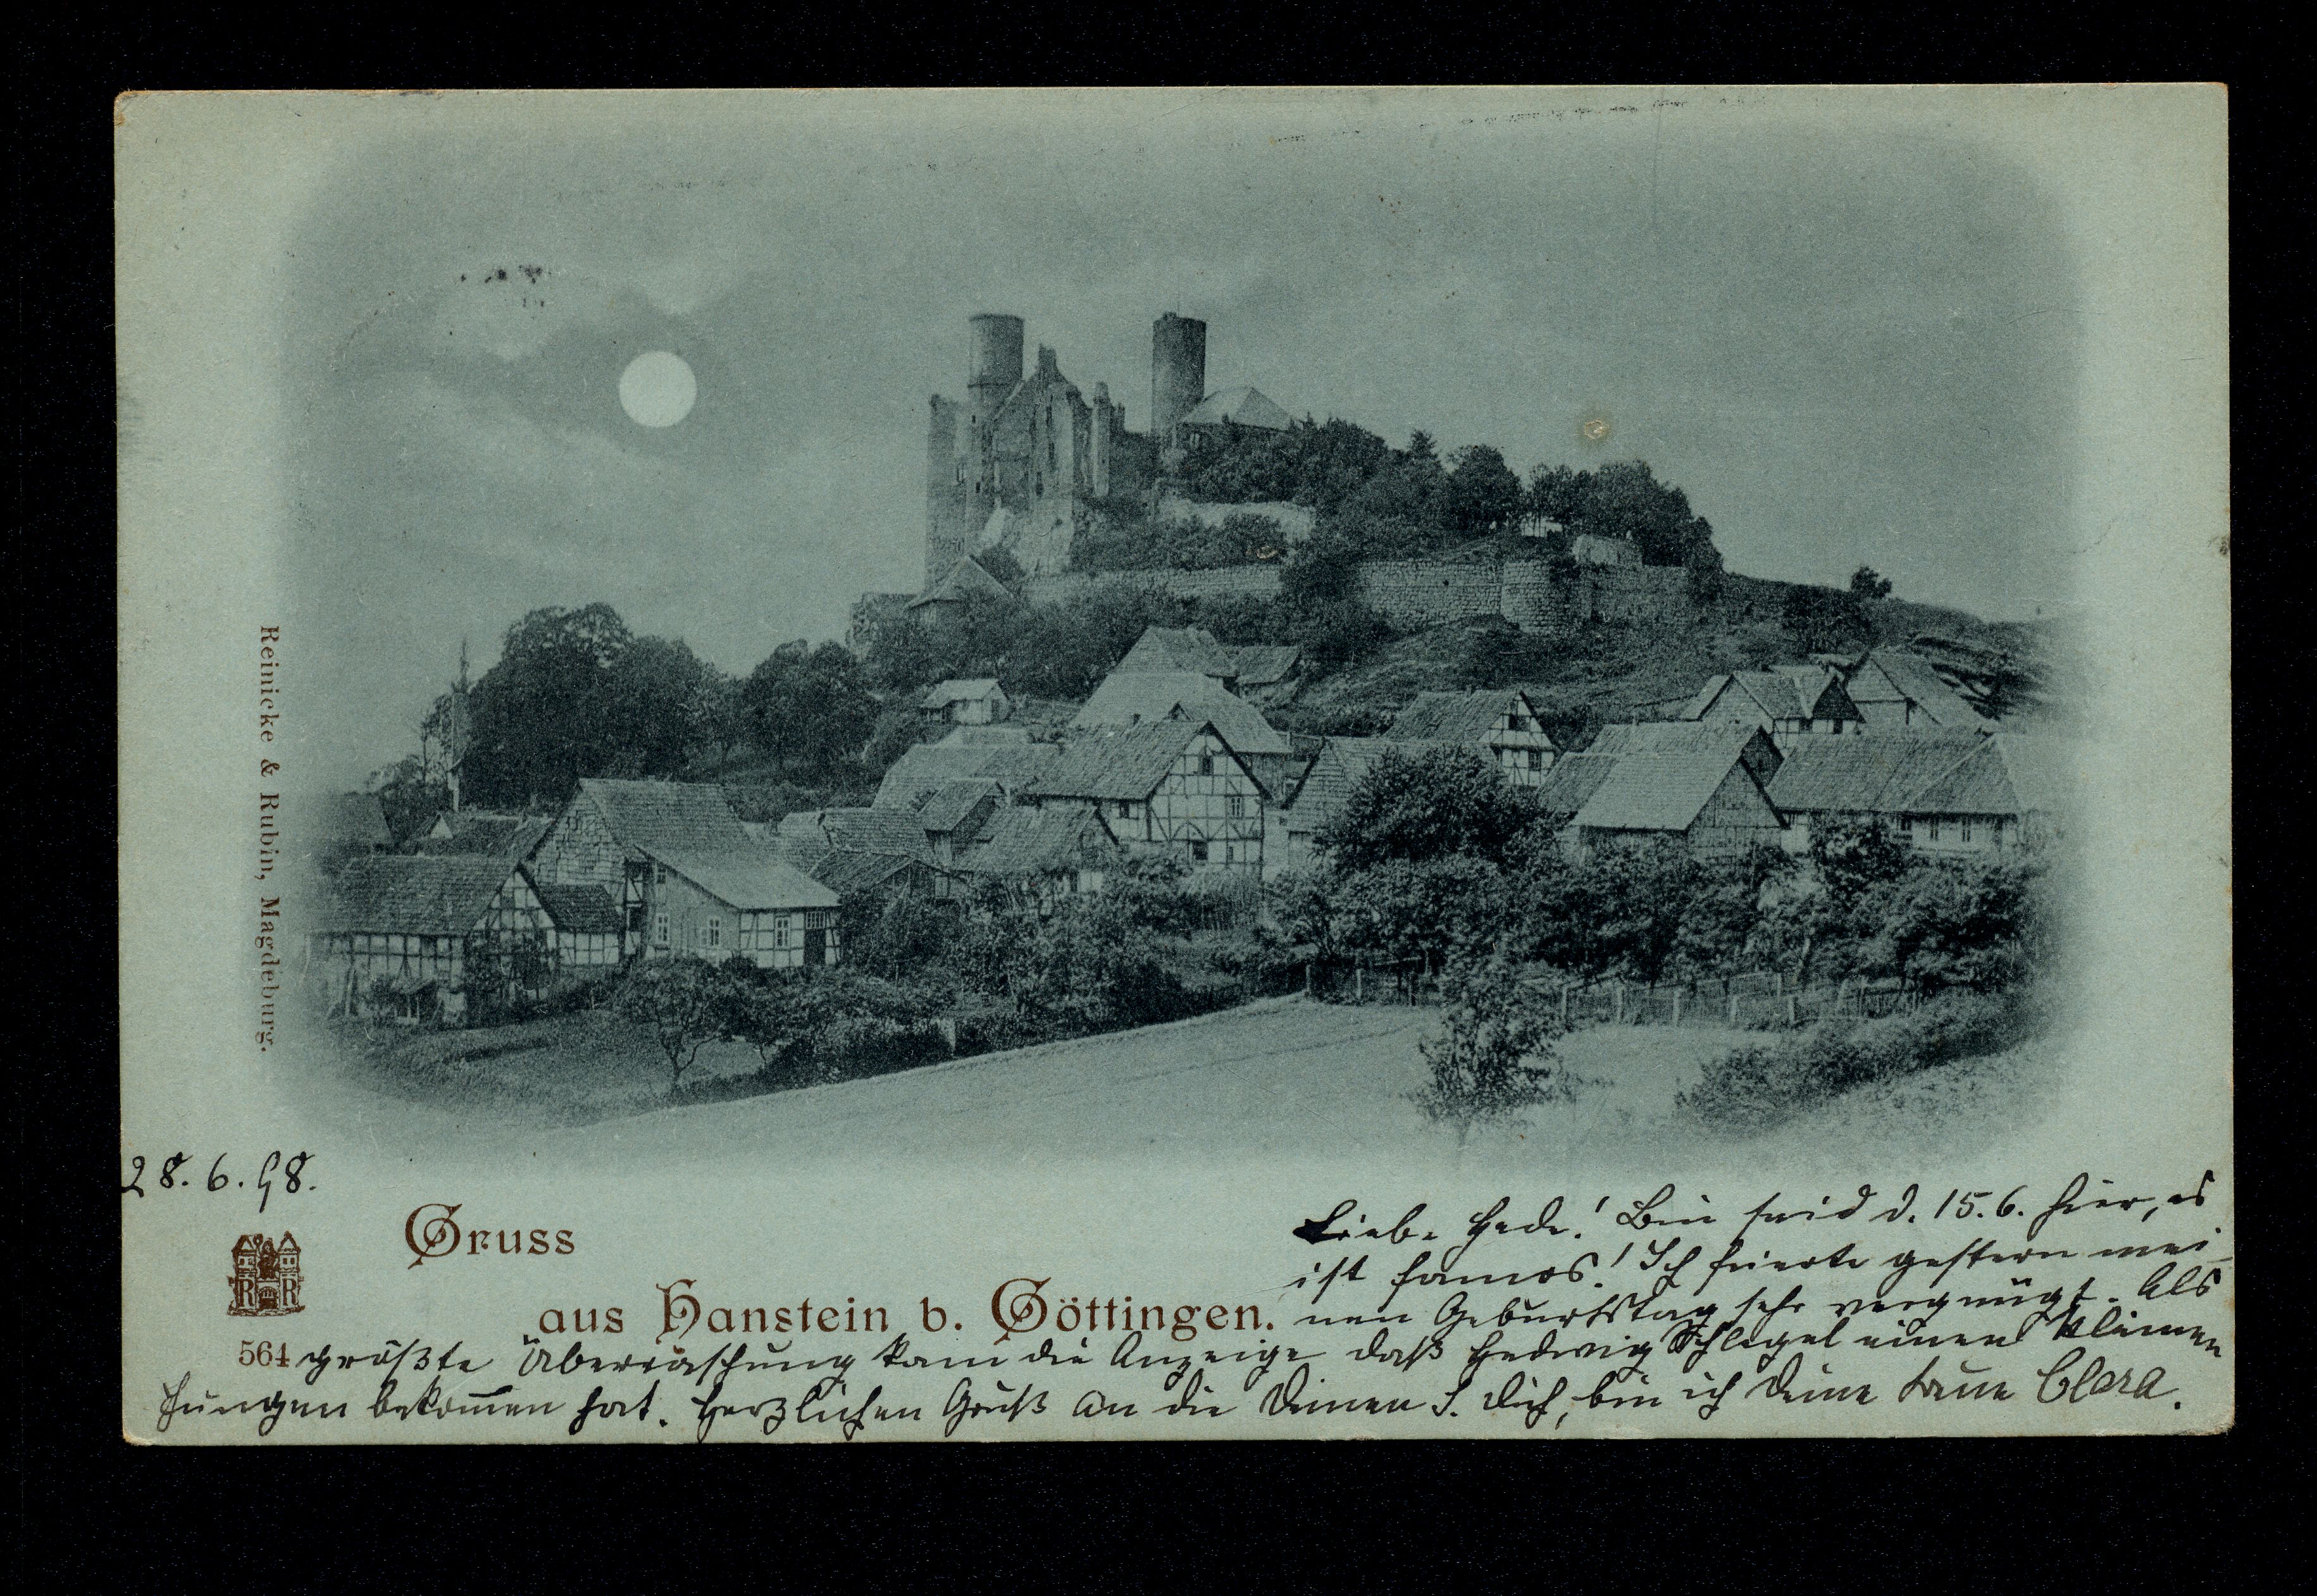 Reinicke & Rubin, Magdeburg.
28.6.98.
Gruss
aus Hanstein b. Göttingen.
R R
564
Liebe Hede! Bin seid d. 15.6. hier, es
ist famos! Ich feierte gestern mei-
nen Geburtstag sehr vergnügt. Als
größte Überraschung kam die Anzeige daß Hedwig Schlegel einen kleinen
Jungen bekommen hat. Herzlichen Gruß an die Deinen u. Dich, bin ich Deine treue Clara.